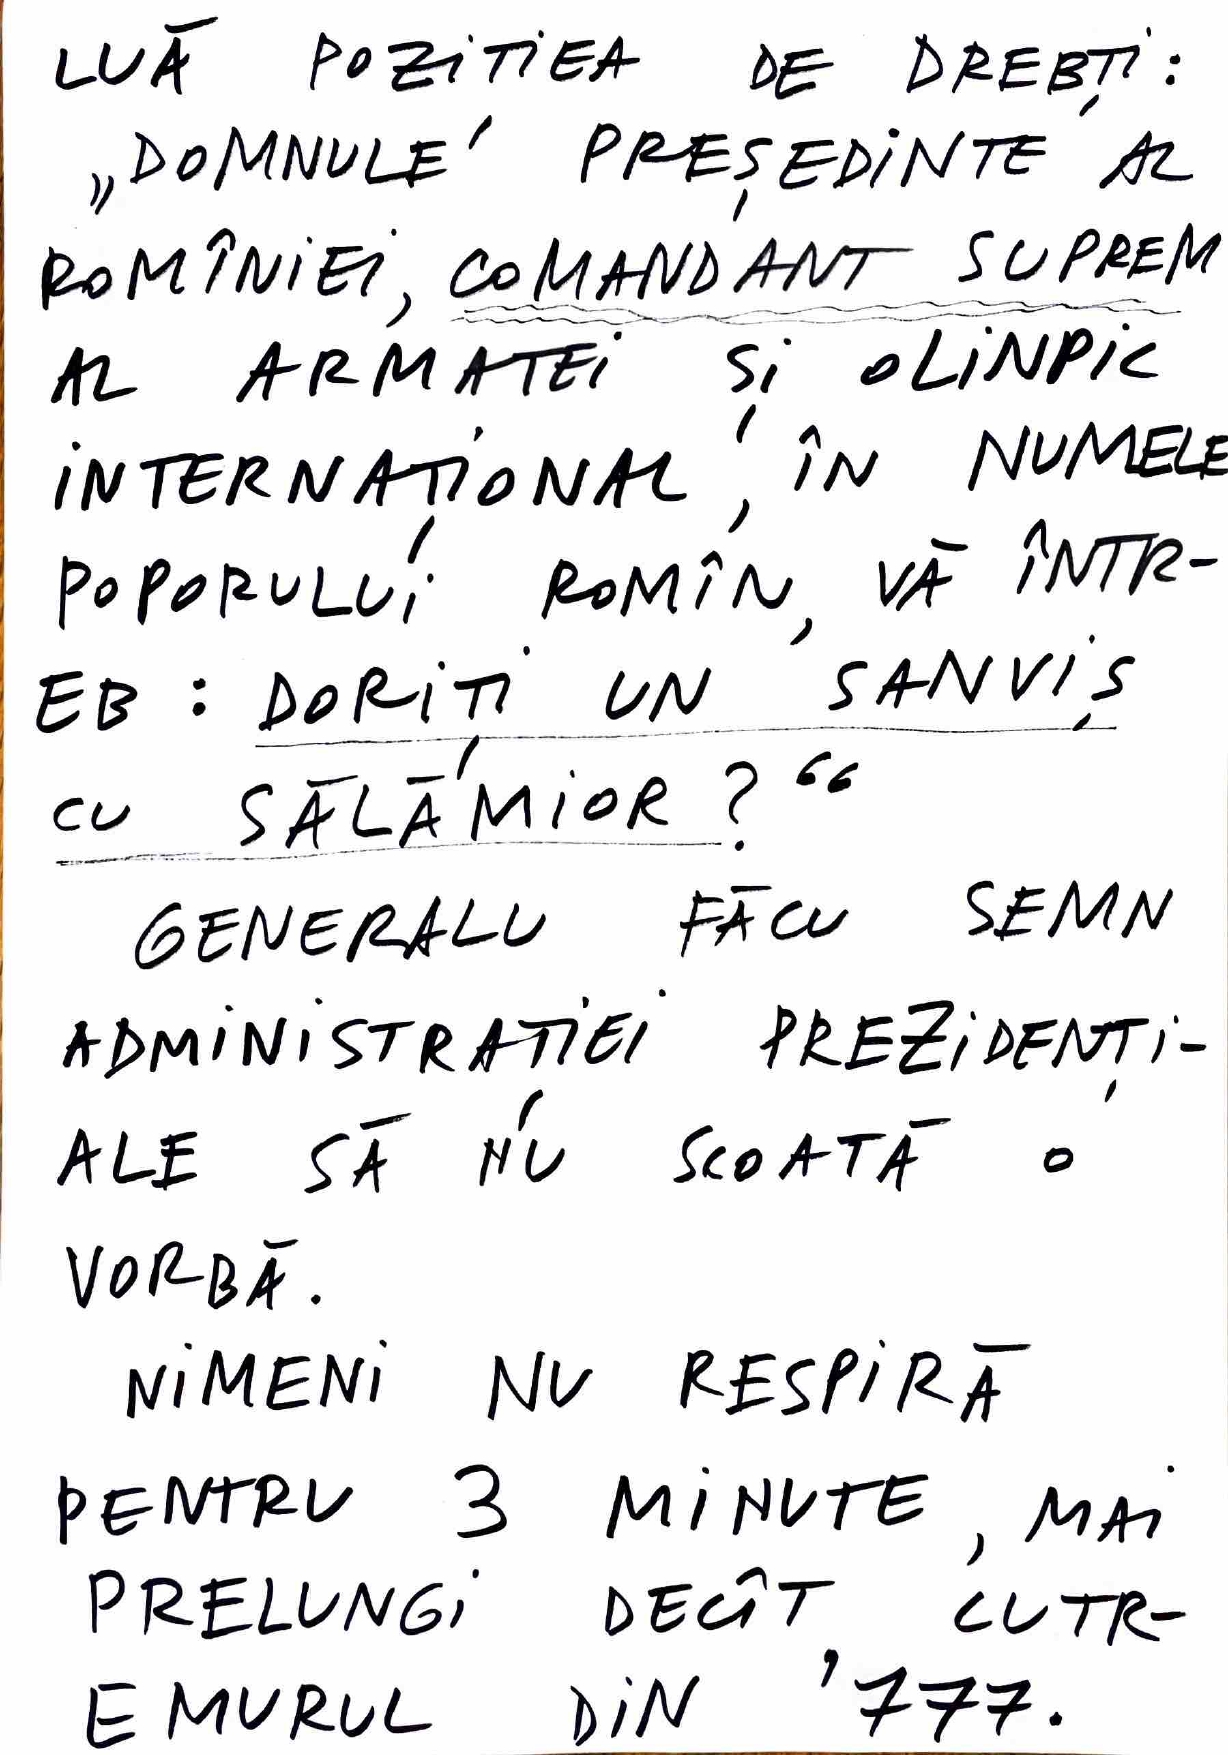 LUĂ POZITIEA DE DREBȚI:
„DOMNULE PREȘEDINTE AL
ROMÎNIEI, COMANDANT SUPREM
AL ARMATEI ȘI OLINPIC
INTERNAȚIONAL, ÎN NUMELE
POPORULUI ROMÎN, VĂ ÎNTR-
EB: DORIȚI UN SANVIȘ
CU SĂLĂMIOR?“
GENERALU FĂCU SEMN
ADMINISTRAȚIEI PREZIDENȚI-
ALE SĂ NU SCOATĂ O
VORBĂ.
NIMENI NU RESPIRĂ
PENTRU 3 MINUTE, MAI
PRELUNGI DECÎT CUTR-
EMURUL DIN '777.